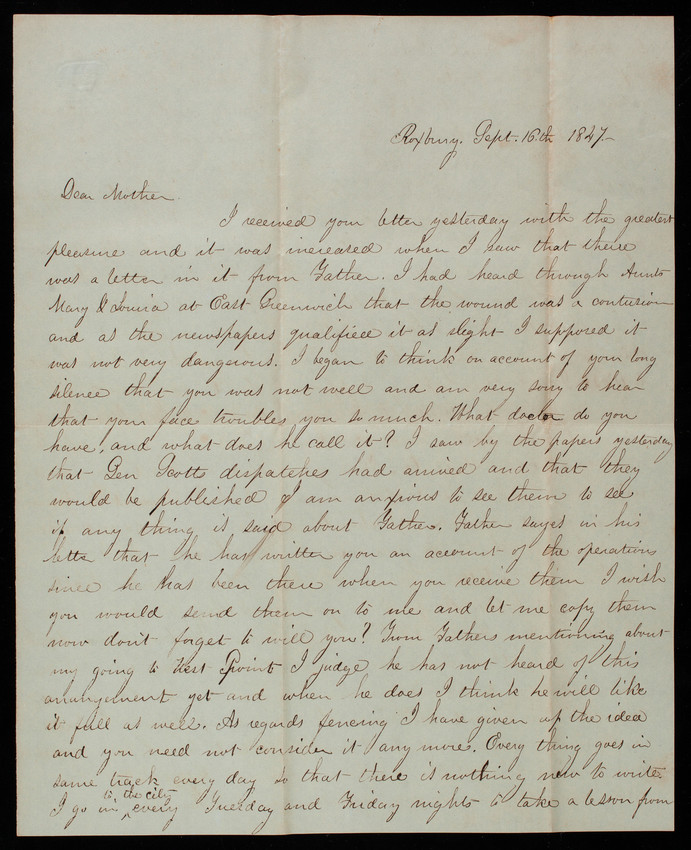 Roxbury. Sept. 16.th 1847.-
Dear Mother
I received your letter yesterday with the greatest
pleasure and it was increased when I saw that there
was a letter in it from Father. I had heard through Aunts
Mary & Louisa at East Greenwich that the wound was a contusion
and as the newspapers qualified it as slight I supposed it
was not very dangerous. I began to think on account of your long
silence that you was not well and am very sorry to hear
that your face troubles you so much. What doctor do you
have, and what does he call it? I saw by the papers yesterday
that Gen Scotts dispatches had arrived and that they
would be published & I am anxious to see them to see
if any thing is said about Father. Father sayes in his
letter that he has written you an account of the operations
since he has been there when you receive them I wish
you would send them on to me and let me copy them
now don't forget to will you? From Fathers mentioning about
my going to West Point I judge he has not heard of this
arrangement yet and when he does I think he will like
it full as well. As regards fencing I have given up the idea
and you need not consider it any more. Every thing goes in
same track every day so that there is nothing new to write
I go in to the city every Tuesday and Friday nights to take a lesson from